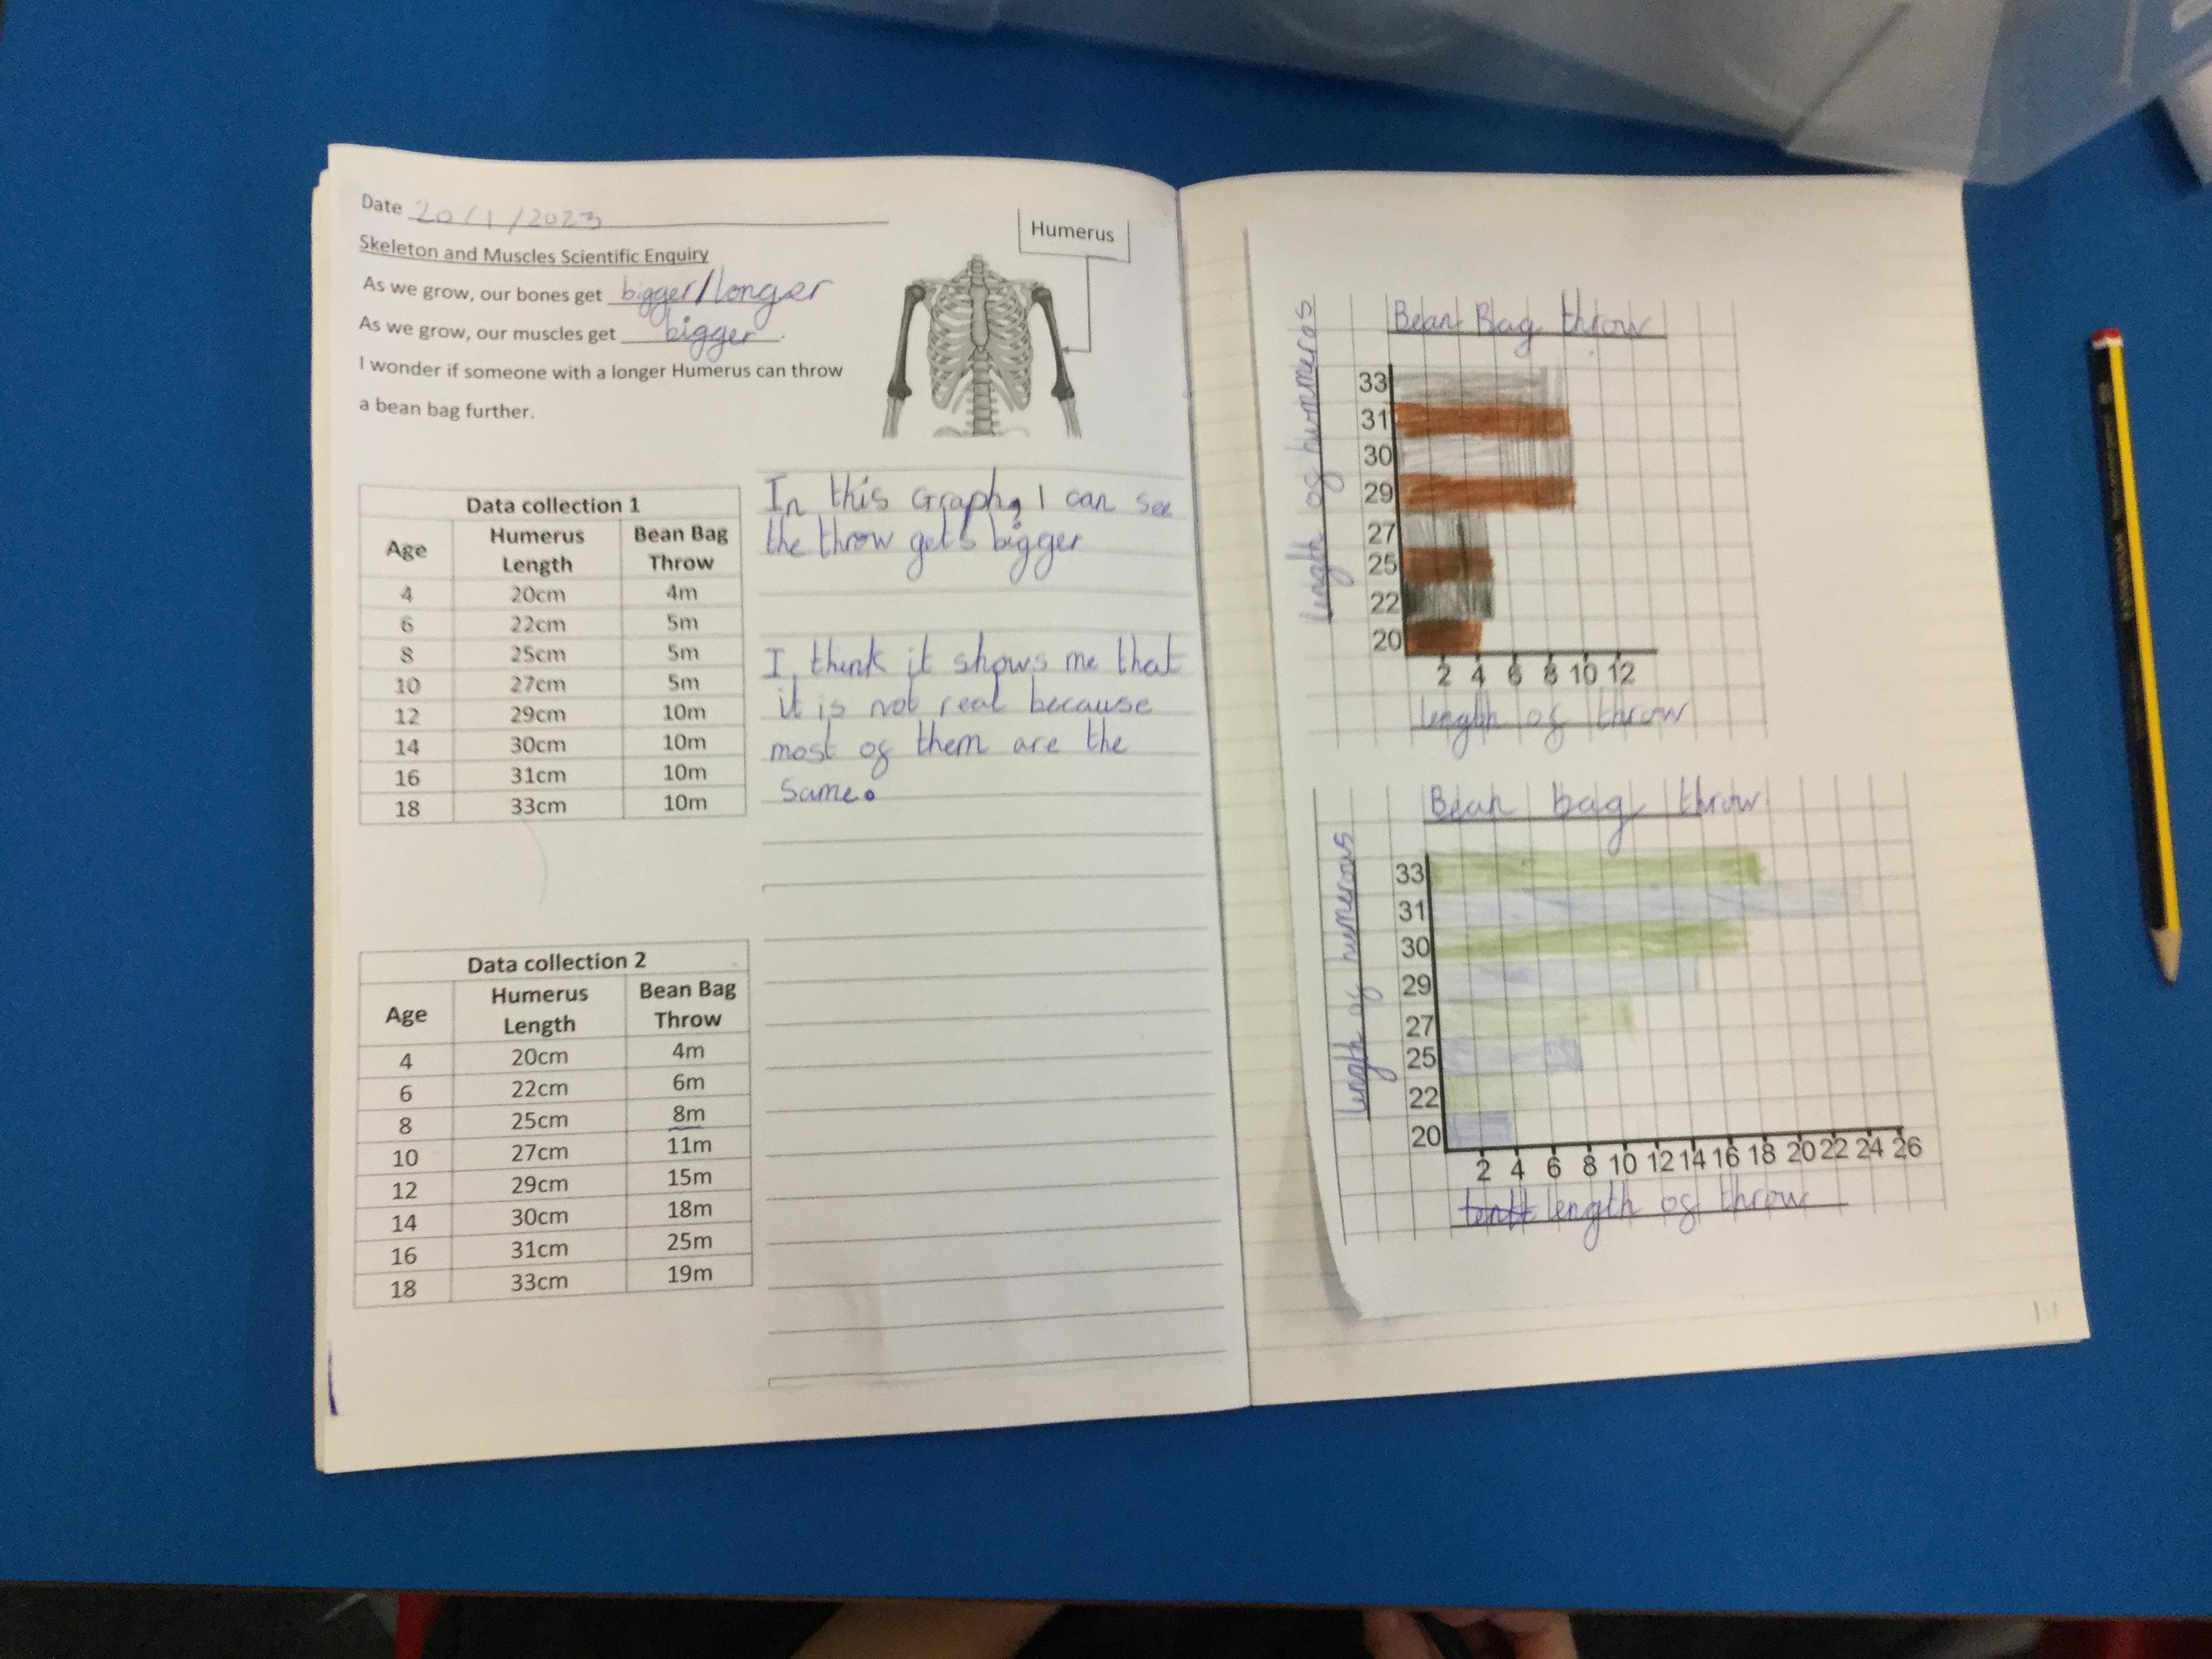 Date 20/1/2023
Humerus
Skeleton and Muscles Scientific Enquiry
As we grow, our bones get bigger/longer
As we grow, our muscles get bigger.
I wonder if someone with a longer Humerus can throw
a bean bag further.
Data collection 1
Age Humerus Length Bean Bag Throw
4 20cm 4m
6 22cm 5m
8 25cm 5m
10 27cm 5m
12 29cm 10m
14 30cm 10m
16 31cm 10m
18 33cm 10m
In this Graph, I can see
the throw gets bigger
I think it shows me that
it is not real because
most of them are the
same.
Data collection 2
Age Humerus Length Bean Bag Throw
4 20cm 4m
6 22cm 6m
8 25cm 8m
10 27cm 11m
12 29cm 15m
14 30cm 18m
16 31cm 25m
18 33cm 19m
Bean Bag throw
length of hummeros
33
31
30
29
27
25
22
20
2 4 6 8 10 12
length of throw
Bean bag throw
length of humerous
33
31
30
29
27
25
22
20
2 4 6 8 10 12 14 16 18 20 22 24 26
length of throw